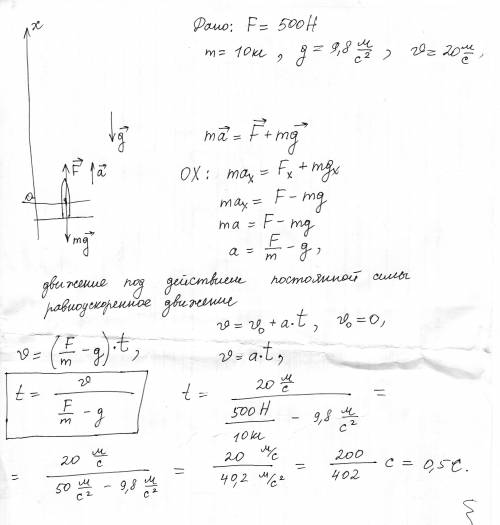 x
Дано: F = 500 Н
m = 10 кг, g = 9,8 м/с², v = 20 м/с,
g⃗
F⃗ a⃗
0
mg⃗
ma⃗ = F⃗ + mg⃗
OX: maₓ = Fₓ + mgₓ
maₓ = F - mg
ma = F - mg
a = F/m - g,
движение под действием постоянной силы
равноускоренное движение
v = v₀ + a·t, v₀ = 0,
v = (F/m - g)·t, v = a·t,
t = v/(F/m - g) t = (20 м/с)/(500 Н/10 кг - 9,8 м/с²) =
= (20 м/с)/(50 м/с² - 9,8 м/с²) = (20 м/с)/(40,2 м/с²) = 200/402 с = 0,5 с.